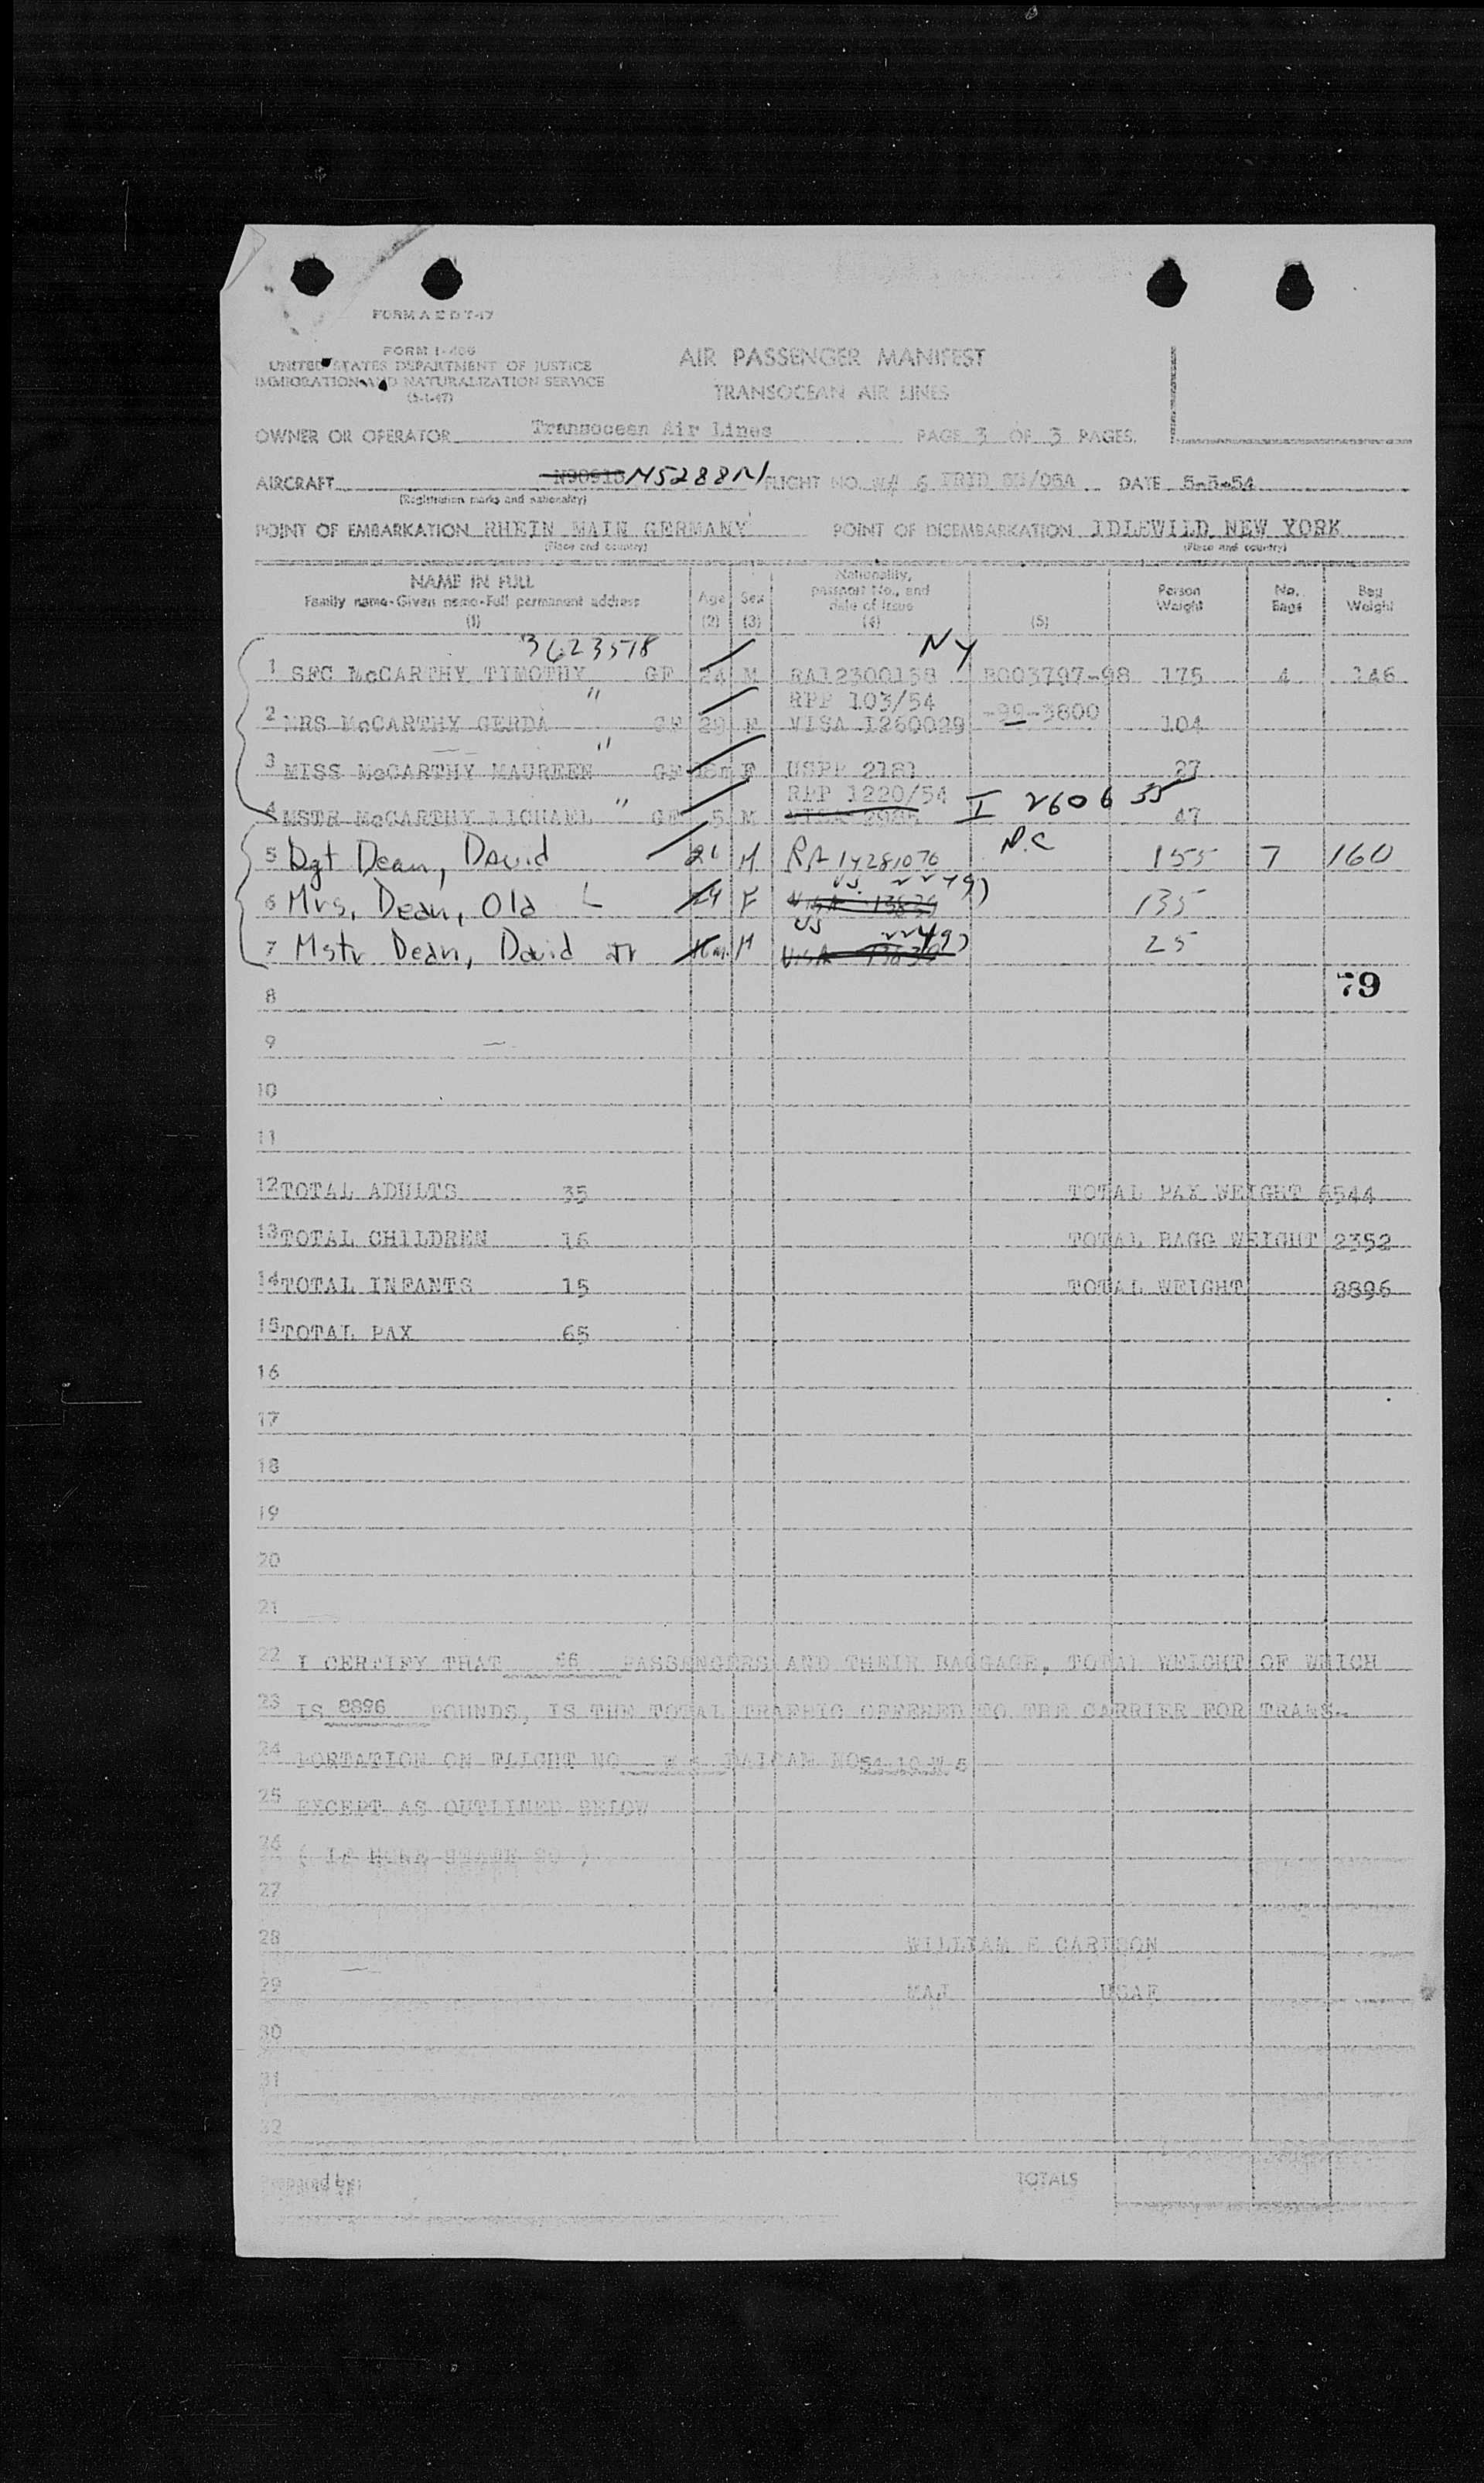 FORM A E D T-17
FORM I-466
UNITED STATES DEPARTMENT OF JUSTICE
IMMIGRATION AND NATURALIZATION SERVICE
(5-1-47)
AIR PASSENGER MANIFEST
TRANSOCEAN AIR LINES
OWNER OR OPERATOR Transocean Air Lines PAGE 3 OF 3 PAGES.
AIRCRAFT N90915 N5288N FLIGHT NO. W# 6 DATE 5-5-54
(Registration marks and nationality)
POINT OF EMBARKATION RHEIN MAIN GERMANY POINT OF DISEMBARKATION IDLEWILD NEW YORK
(Place and country) (Place and country)
NAME IN FULL
Family name-Given name-Full permanent address
(1)
Age
(2)
Sex
(3)
Nationality,
passport No., and
date of issue
(4)
(5)
Person
Weight
No.
Bags
Bag
Weight
3623578 NY
1 SFC McCARTHY TIMOTHY GF 24 M RA12300158 B003797-98 175 4 146
" RPP 103/54
2 MRS McCARTHY GERDA GF 29 F VISA 1260029 -99-3800 104
"
3 MISS McCARTHY MAUREEN GF F USPP 2181 27
" RPP 1220/54 I 260655
4 MSTR McCARTHY MICHAEL GF 5 M VISA 2985 47
N.C
5 Sgt Dean, David 26 M RA 14281076 155 7 160
US 22491
6 Mrs. Dean, Old L 24 F VISA 13839 135
US 22491
7 Mstr Dean, David Jr M VISA 13839 25
79
8
9
10
11
12 TOTAL ADULTS 35 TOTAL PAX WEIGHT 6544
13 TOTAL CHILDREN 16 TOTAL BAGG WEIGHT 2352
14 TOTAL INFANTS 15 TOTAL WEIGHT 8896
15 TOTAL PAX 65
16
17
18
19
20
21
22 I CERTIFY THAT 66 PASSENGERS AND THEIR BAGGAGE, TOTAL WEIGHT OF WHICH
23 IS 8896 POUNDS, IS THE TOTAL TRAFFIC OFFERED TO THE CARRIER FOR TRANS-
24 PORTATION ON FLIGHT NO
25 EXCEPT AS OUTLINED BELOW
26 ( IF NONE STATE SO )
27
28 WILLIAM E CARLSON
29 MAJ USAF
30
31
32
Prepared by: TOTALS